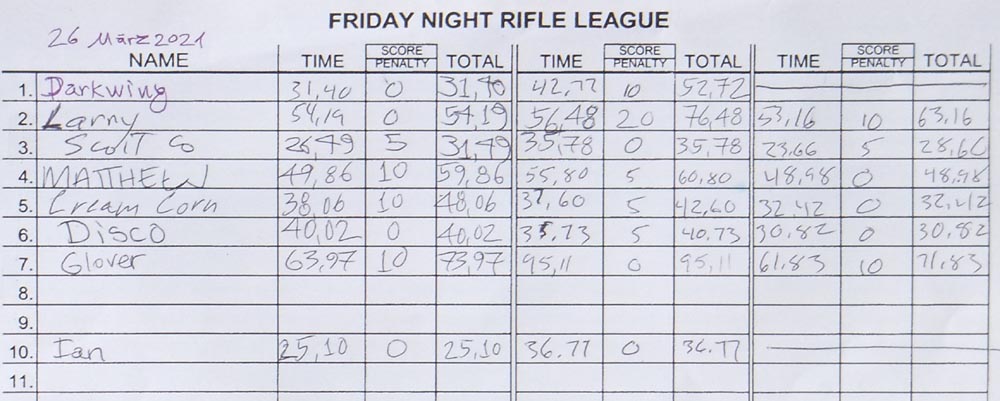 FRIDAY NIGHT RIFLE LEAGUE
26 März 2021
NAME TIME SCORE PENALTY TOTAL TIME SCORE PENALTY TOTAL TIME SCORE PENALTY TOTAL
1. Darkwing 31,40 0 31,40 42,77 10 52,72
2. Larry 54,19 0 54,19 56,48 20 76,48 53,16 10 63,16
3. Scott Co 26,49 5 31,49 35,78 0 35,78 23,66 5 28,66
4. MATTHEW 49,86 10 59,86 55,80 5 60,80 48,98 0 48,98
5. Cream Corn 38,06 10 48,06 37,60 5 42,60 32,42 0 32,42
6. Disco 40,02 0 40,02 35,73 5 40,73 30,82 0 30,82
7. Glover 63,97 10 73,97 95,11 0 95,11 61,83 10 71,83
8.
9.
10. Ian 25,10 0 25,10 36.77 0 36.77
11.